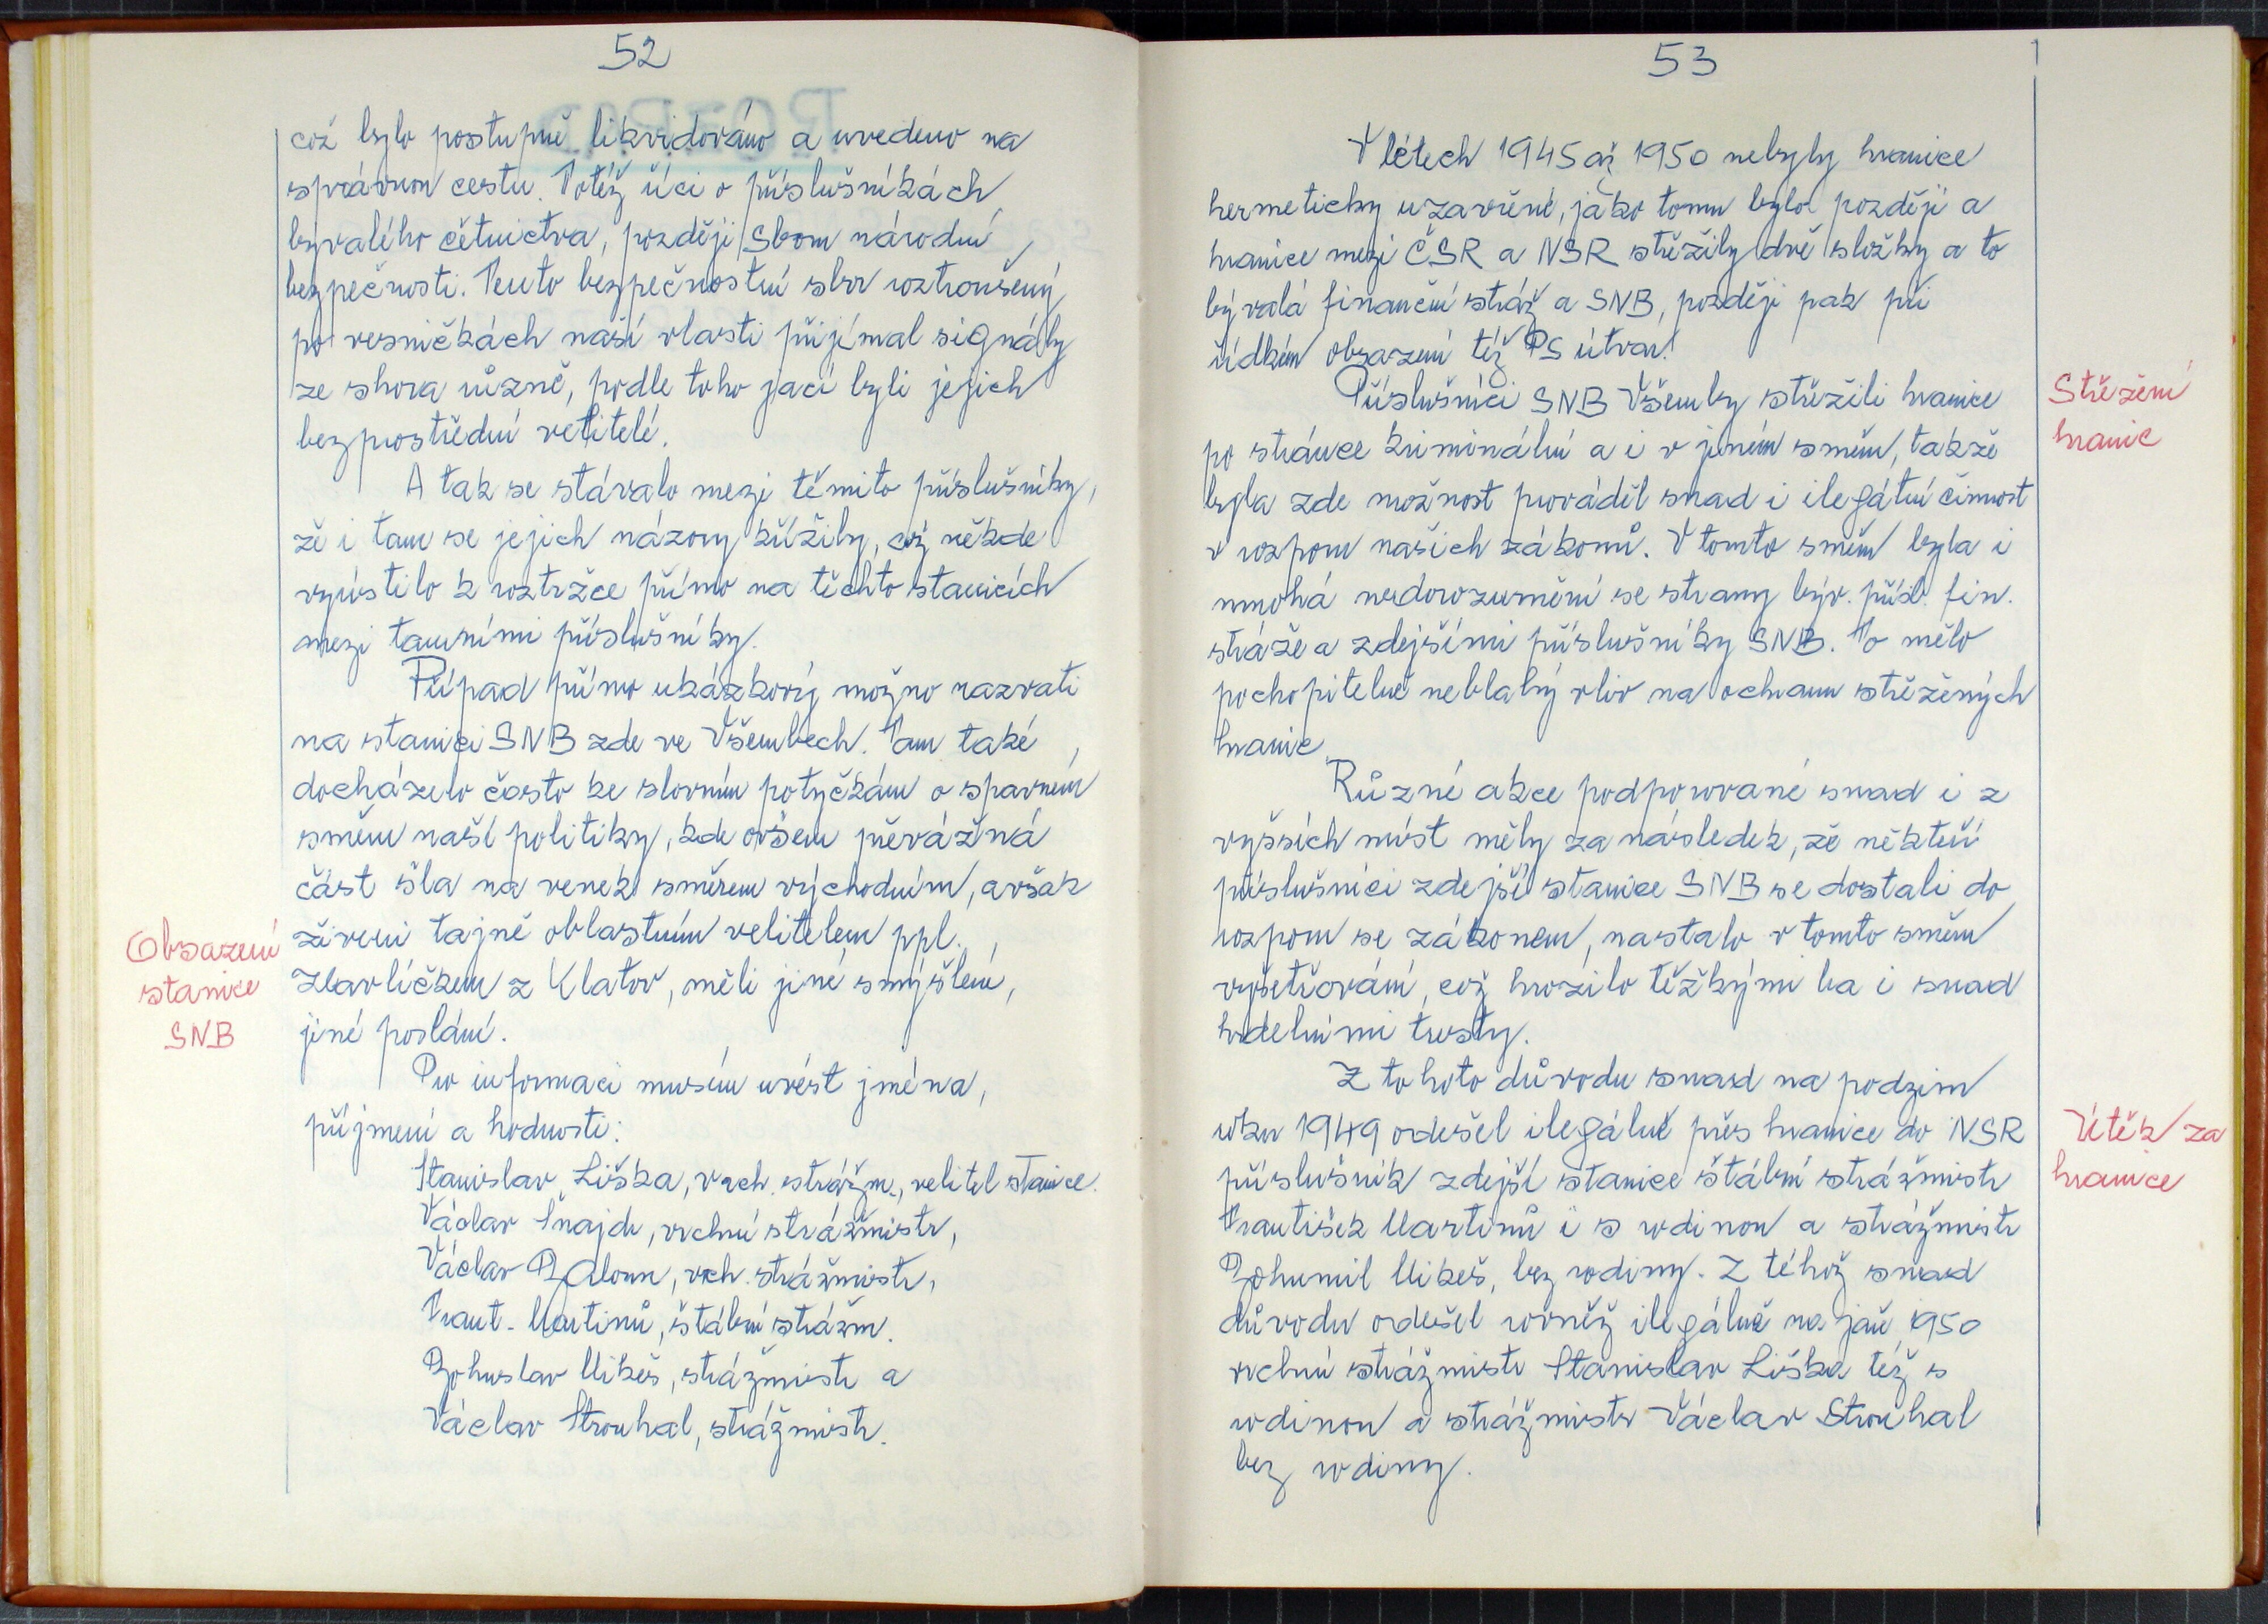 52
což bylo postupně likvidováno a uvedeno na
správnou cestu. Totéž říci o příslušníkách
bývalého četnictva, později Sboru národní
bezpečnosti. Tento bezpečnostní sbor roztroušený
po vesničkách naší vlasti přijímal signály
ze shora různě, podle toho jací byli jejich
bezprostřední velitelé.
A tak se stávalo mezi těmito příslušníky,
že i tam se jejich názory křížily, což někde
vyústilo k roztržce přímo na těchto stanicích
mezi tamními příslušníky.
Případ přímo ukázkový možno nazvati
na stanici SNB zde ve Všerubech. Tam také
docházelo často ke slovním potyčkám o spavném
směru naší politiky, kde ovšem převážná
část šla na venek směrem východním, avšak
živeni tajně oblastním velitelem ppl.
Havlíčkem z Klatov, měli jiné smýšlení,
jiné poslání.
Obsazení
stanice
SNB
Pro informaci musím uvést jména,
příjmení a hodnosti:
Stanislav Liška, vrch. strážm., velitel stanice.
Václav Šnajdr, vrchní strážmistr,
Václav Baloun, vrch. strážmistr,
Frant. Martinů, štábní strážm.
Bohuslav Mikeš, strážmistr a
Václav Strouhal, strážmistr.
53
V létech 1945 až 1950 nebyly hranice
hermeticky uzavřené, jako tomu bylo později a
hranice mezi ČSR a NSR střežily dvě složky a to
bývalá finanční stráž a SNB, později pak při
řídkém obsazení též PS útvar.
Příslušníci SNB Všeruby střežili hranice
po stránce kriminální a i v jiném směru, takže
byla zde možnost provádět snad i ilegální činnost
v rozporu našich zákonů. V tomto směru byla i
mnohá nedorozumění se strany býv. přísl. fin.
stráže a zdejšími příslušníky SNB. To mělo
pochopitelně neblahý vliv na ochranu střežených
hranic.
Střežení
hranic
Různé akce podporované snad i z
vyšších míst měly za následek, že někteří
příslušníci zdejší stanice SNB se dostali do
rozporu se zákonem, nastalo v tomto směru
vyšetřování, což hrozilo těžkými ba i snad
hrdelními tresty.
Z tohoto důvodu snad na podzim
roku 1949 odešel ilegálně přes hranice do NSR
příslušník zdejší stanice štábní strážmistr
František Martinů i s rodinou a strážmistr
Bohumil Mikeš, bez rodiny. Z téhož snad
důvodu odešel rovněž ilegálně na jaře 1950
vrchní strážmistr Stanislav Liška též s
rodinou a strážmistr Václav Strouhal
bez rodiny.
Útěk za
hranice